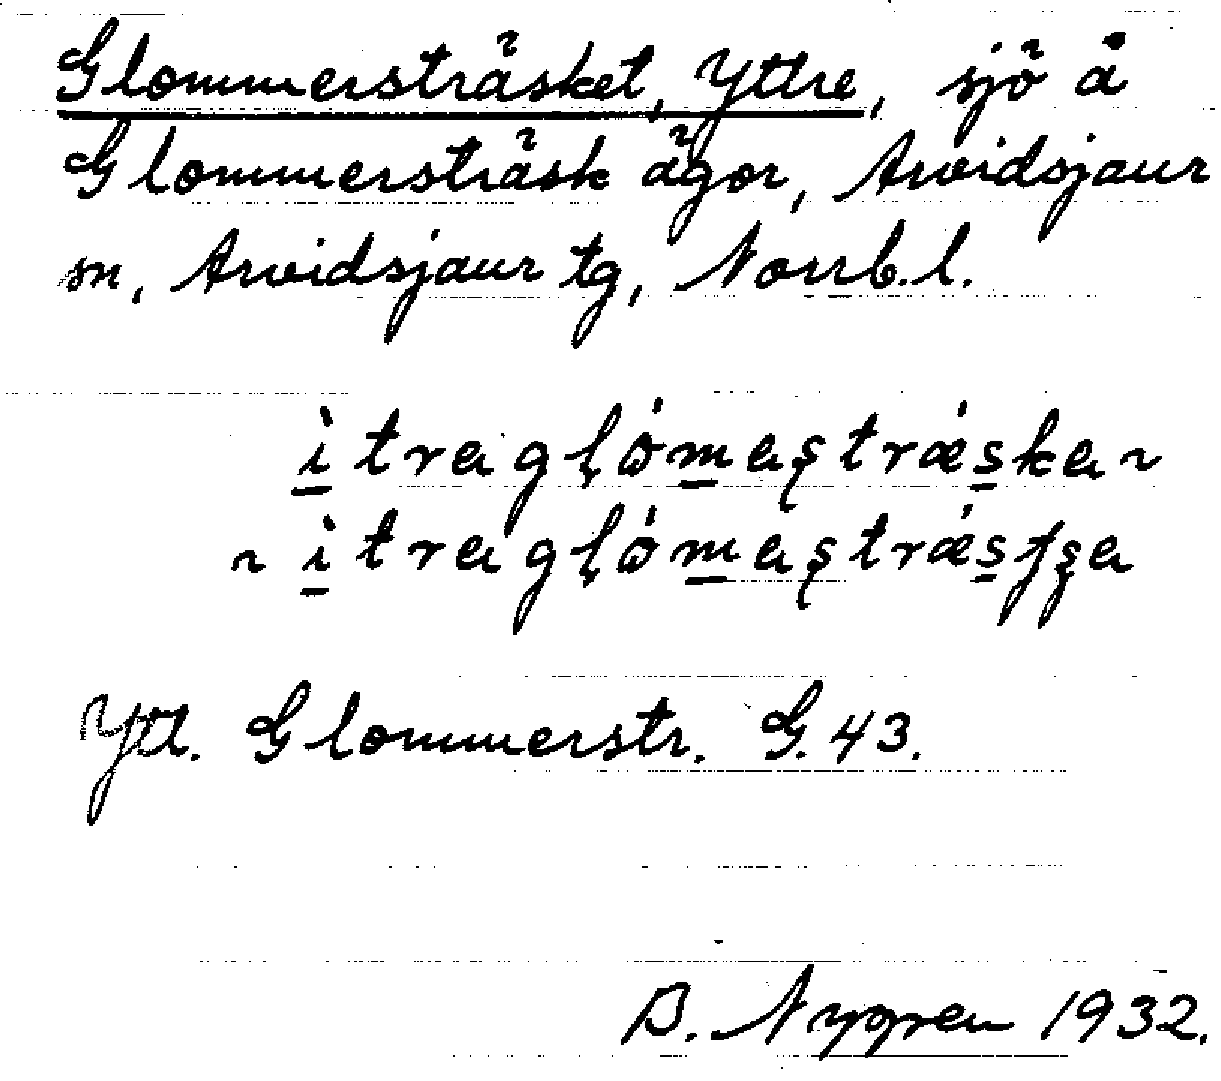 Glommersträsket, Yttre, sjö å
Glommersträsk ägor, Arvidsjaur
sn, Arvidsjaur tg, Norrb.l.
Ytt. Glommerstr. G. 43.
B. Nygren 1932.